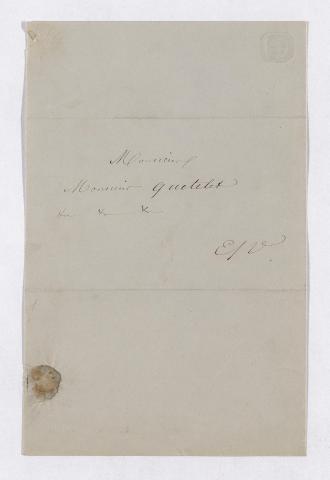 Monsieur
Monsieur Quetelet
&c &c &c
E/V.